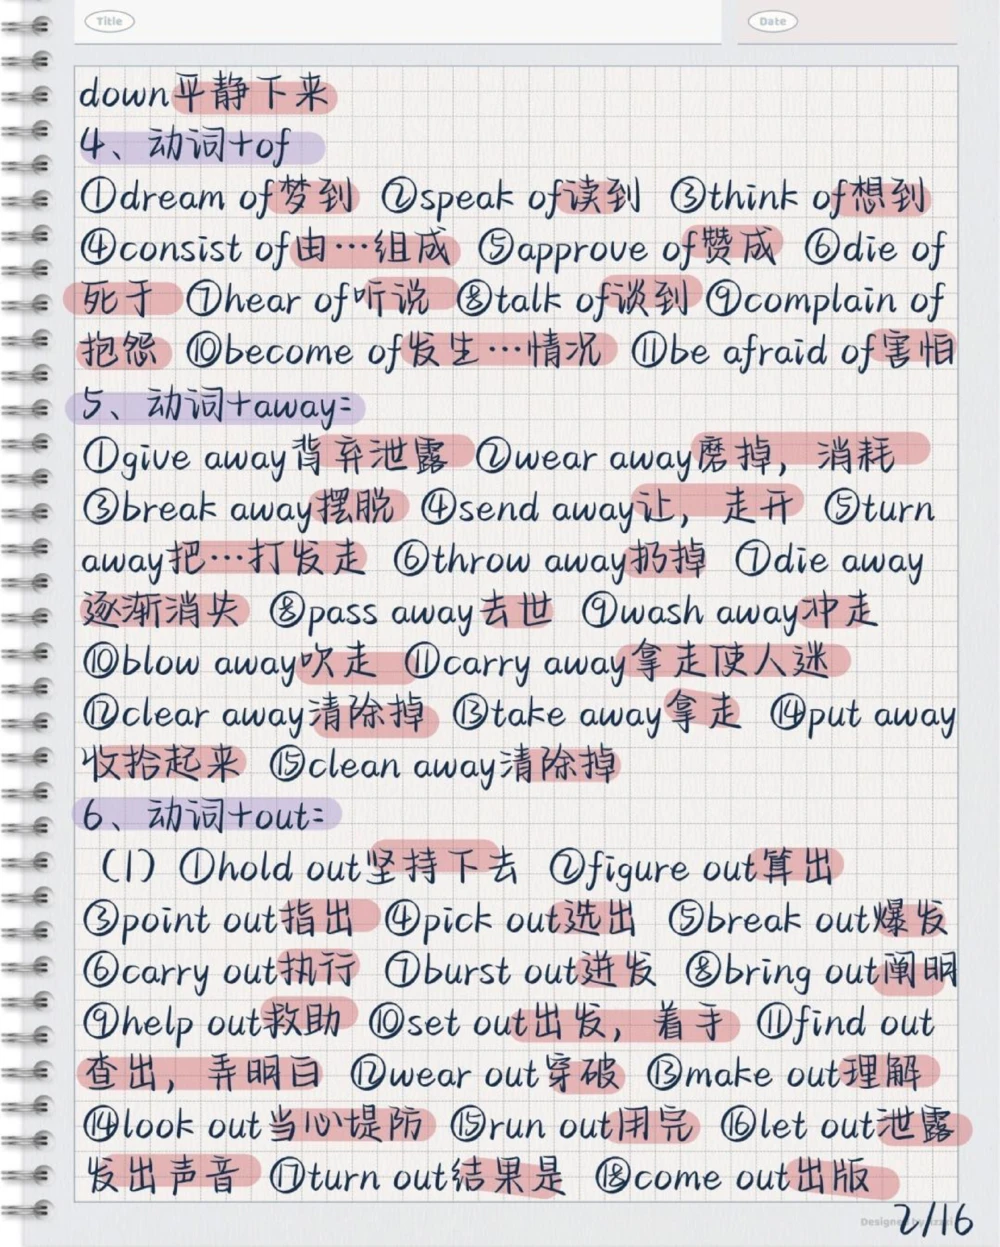 Title
Date
down平静下来
4、动词+of
①dream of梦到 ②speak of读到 ③think of想到
④consist of由…组成 ⑤approve of赞成 ⑥die of
死于 ⑦hear of听说 ⑧talk of谈到 ⑨complain of
抱怨 ⑩become of发生…情况 ⑪be afraid of害怕
5、动词+away:
①give away背弃泄露 ②wear away磨掉，消耗
③break away摆脱 ④send away让，走开 ⑤turn
away把…打发走 ⑥throw away扔掉 ⑦die away
逐渐消失 ⑧pass away去世 ⑨wash away冲走
⑩blow away吹走 ⑪carry away拿走使人迷
⑫clear away清除掉 ⑬take away拿走 ⑭put away
收拾起来 ⑮clean away清除掉
6、动词+out:
（1）①hold out坚持下去 ②figure out算出
③point out指出 ④pick out选出 ⑤break out爆发
⑥carry out执行 ⑦burst out迸发 ⑧bring out阐明
⑨help out救助 ⑩set out出发，着手 ⑪find out
查出，弄明白 ⑫wear out穿破 ⑬make out理解
⑭look out当心堤防 ⑮run out用完 ⑯let out泄露
发出声音 ⑰turn out结果是 ⑱come out出版
2/16